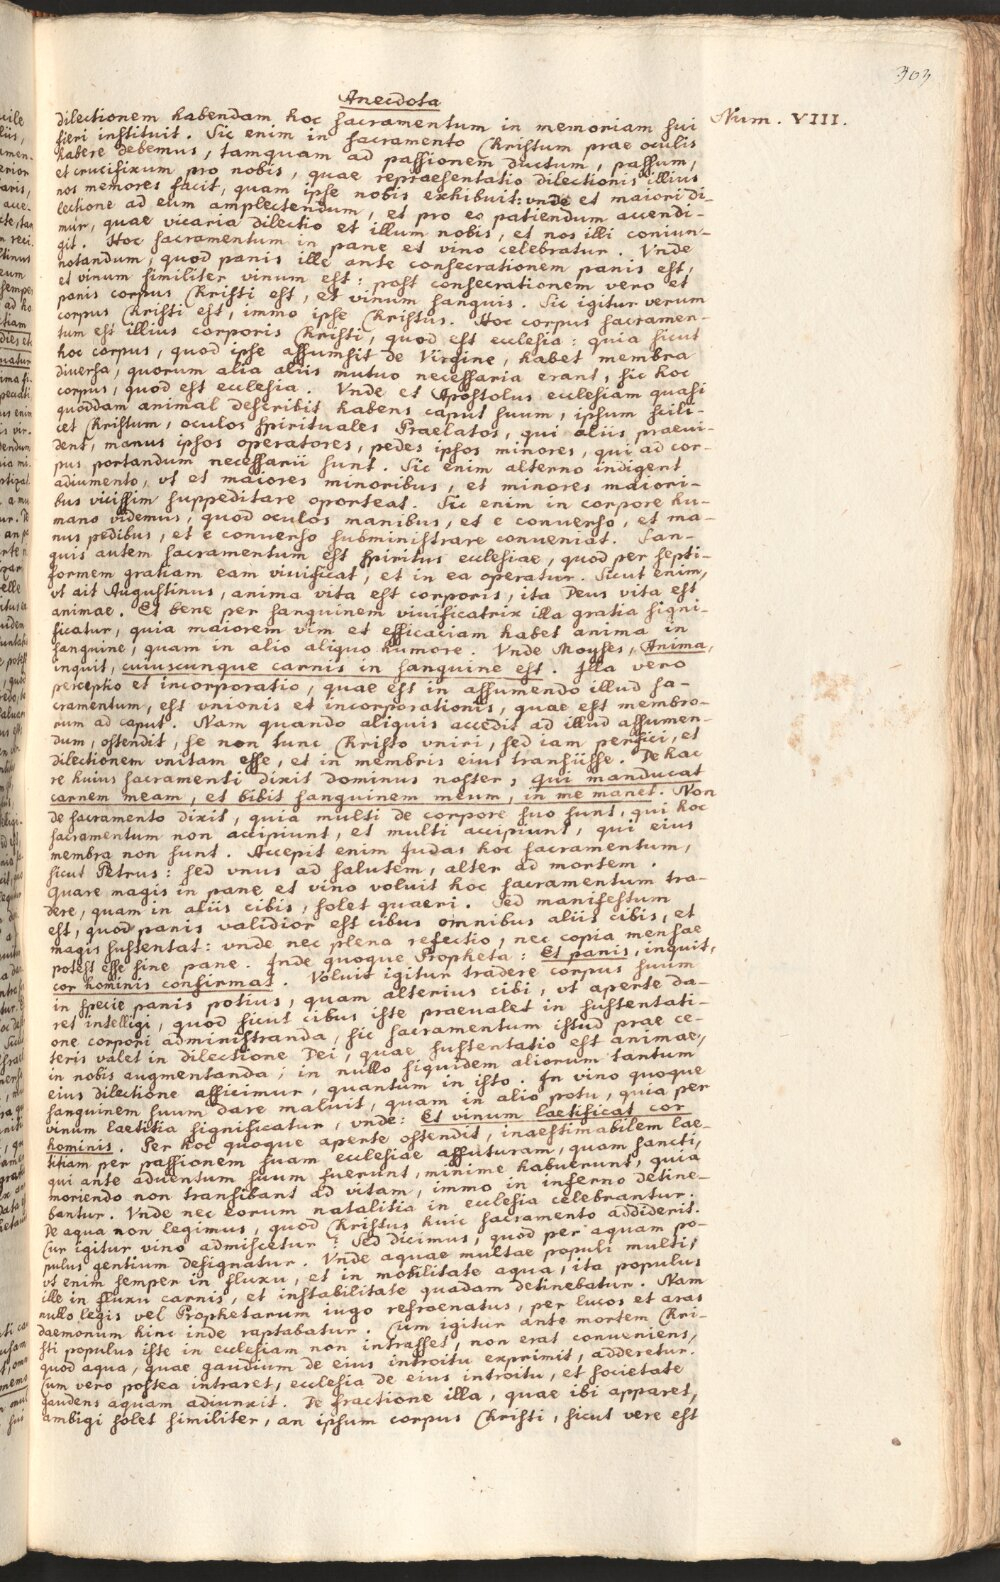 303
Anecdota
Num. VIII.
dilectionem habendam hoc sacramentum in memoriam sui
fieri instituit. Sic enim in sacramento Christum prae oculis
habere debemus, tamquam ad passionem ductum, passum,
et crucifixum pro nobis, quae repraesentatio dilectionis illius
nos memores facit, quam ipse nobis exhibuit: vnde et maiori di-
lectione ad eum amplectendum, et pro eo patiendum accendi-
mur, quae vicaria dilectio et illum nobis, et nos illi coniun-
git. Hoc sacramentum in pane et vino celebratur. Vnde
notandum, quod panis ille ante consecrationem panis est,
et vinum similiter vinum est: post consecrationem vero et
panis corpus Christi est, et vinum sanguis. Sic igitur verum
corpus Christi est, immo ipse Christus. Hoc corpus sacramen-
tum est illius corporis Christi, quod est ecclesia: quia sicut
hoc corpus, quod ipse assumsit de Virgine, habet membra
diversa, quorum alia aliis mutuo necessaria erant, sic hoc
corpus, quod est ecclesia. Vnde et Apostolus ecclesiam quasi
quoddam animal describit habens caput suum, ipsum scili-
cet Christum, oculos spirituales Praelatos, qui aliis praeui-
dent, manus ipsos operatores, pedes ipsos minores, qui ad cor-
pus portandum necessarii sunt. Sic enim alterno indigent
adiumento, vt et maiores minoribus, et minores maiori-
bus vicissim suppeditare oporteat. Sic enim in corpore hu-
mano videmus, quod oculos manibus, et e conuerso, et ma-
nus pedibus, et e conuerso subministrare conueniat. San-
guis autem sacramentum est spiritus ecclesiae, quod per septi-
formem gratiam eam viuificat, et in ea operatur. Sicut enim,
vt ait Augustinus, anima vita est corporis, ita Deus vita est
animae. Et bene per sanguinem viuificatrix illa gratia signi-
ficatur, quia maiorem vim et efficaciam habet anima in
sanguine, quam in alio aliquo humore. Vnde Moyses, Anima,
inquit, cuiuscunque carnis in sanguine est. Illa vero
perceptio et incorporatio, quae est in assumendo illud sa-
cramentum, est vnionis et incorporationis, quae est membro-
rum ad caput. Nam quando aliquis accedit ad illud assumen-
dum, ostendit, se non tunc Christo vniri, sed iam perfici, et
dilectionem vnitam esse, et in membris eius transiisse. De hac
re huius sacramenti dixit dominus noster, qui manducat
carnem meam, et bibit sanguinem meum, in me manet. Non
de sacramento dixit, quia multi de corpore suo sunt, qui hoc
sacramentum non accipiunt, et multi accipiunt, qui eius
membra non sunt. Accepit enim Judas hoc sacramentum,
sicut Petrus: sed vnus ad salutem, alter ad mortem.
Quare magis in pane et vino voluit hoc sacramentum tra-
dere, quam in aliis cibis, solet quaeri. Sed manifestum
est, quod panis validior est cibus omnibus aliis cibis, et
magis sustentat: vnde nec plena refectio, nec copia mensae
potest esse sine pane. Inde quoque Propheta: Et panis, inquit,
cor hominis confirmat. Voluit igitur tradere corpus suum
in specie panis potius, quam alterius cibi, vt aperte da-
ret intelligi, quod sicut cibus iste praeualet in sustentati-
one corpori administranda, sic sacramentum istud prae ce-
teris valet in dilectione Dei, quae sustentatio est animae,
in nobis augmentanda; in nullo siquidem aliorum tantum
eius dilectione afficimur, quantum in isto. In vino quoque
sanguinem suum dare maluit, quam in alio potu, quia per
vinum laetitia significatur, vnde: Et vinum laetificat cor
hominis. Per hoc quoque aperte ostendit, inaestimabilem lae-
titiam per passionem suam ecclesiae affuturam, quam sancti,
qui ante aduentum suum fuerunt, minime habuerunt, quia
moriendo non transibant ad vitam, immo in inferno detine-
bantur. Vnde nec eorum natalitia in ecclesia celebrantur.
De aqua non legimus, quod Christus huic sacramento addiderit.
Cur igitur vino admiscetur? Sed dicimus, quod per aquam po-
pulus gentium designatur. Vnde aquae multae populi multi,
vt enim semper in fluxu, et in mobilitate aqua, ita populus
ille in fluxu carnis, et instabilitate quadam detinebatur. Nam
nullo legis vel Prophetarum iugo refraenatus, per lucos et aras
daemonum hinc inde raptabatur. Cum igitur ante mortem Chri-
sti populus iste in ecclesiam non intrasset, non erat conueniens,
quod aqua, quae gaudium de eius introitu exprimit, adderetur.
Cum vero postea intraret, ecclesia de eius introitu, et societate
gaudens aquam adiunxit. De fractione illa, quae ibi apparet,
ambigi solet similiter, an ipsum corpus Christi, sicut vere est